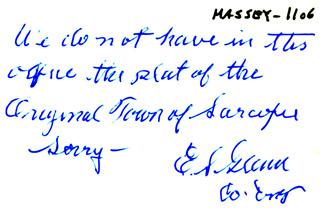 MASSEY-1106
We do not have in this
office the plat of the
Original Town of Sarcoxie
Sorry-
E.S. Glenn
Co. Engr